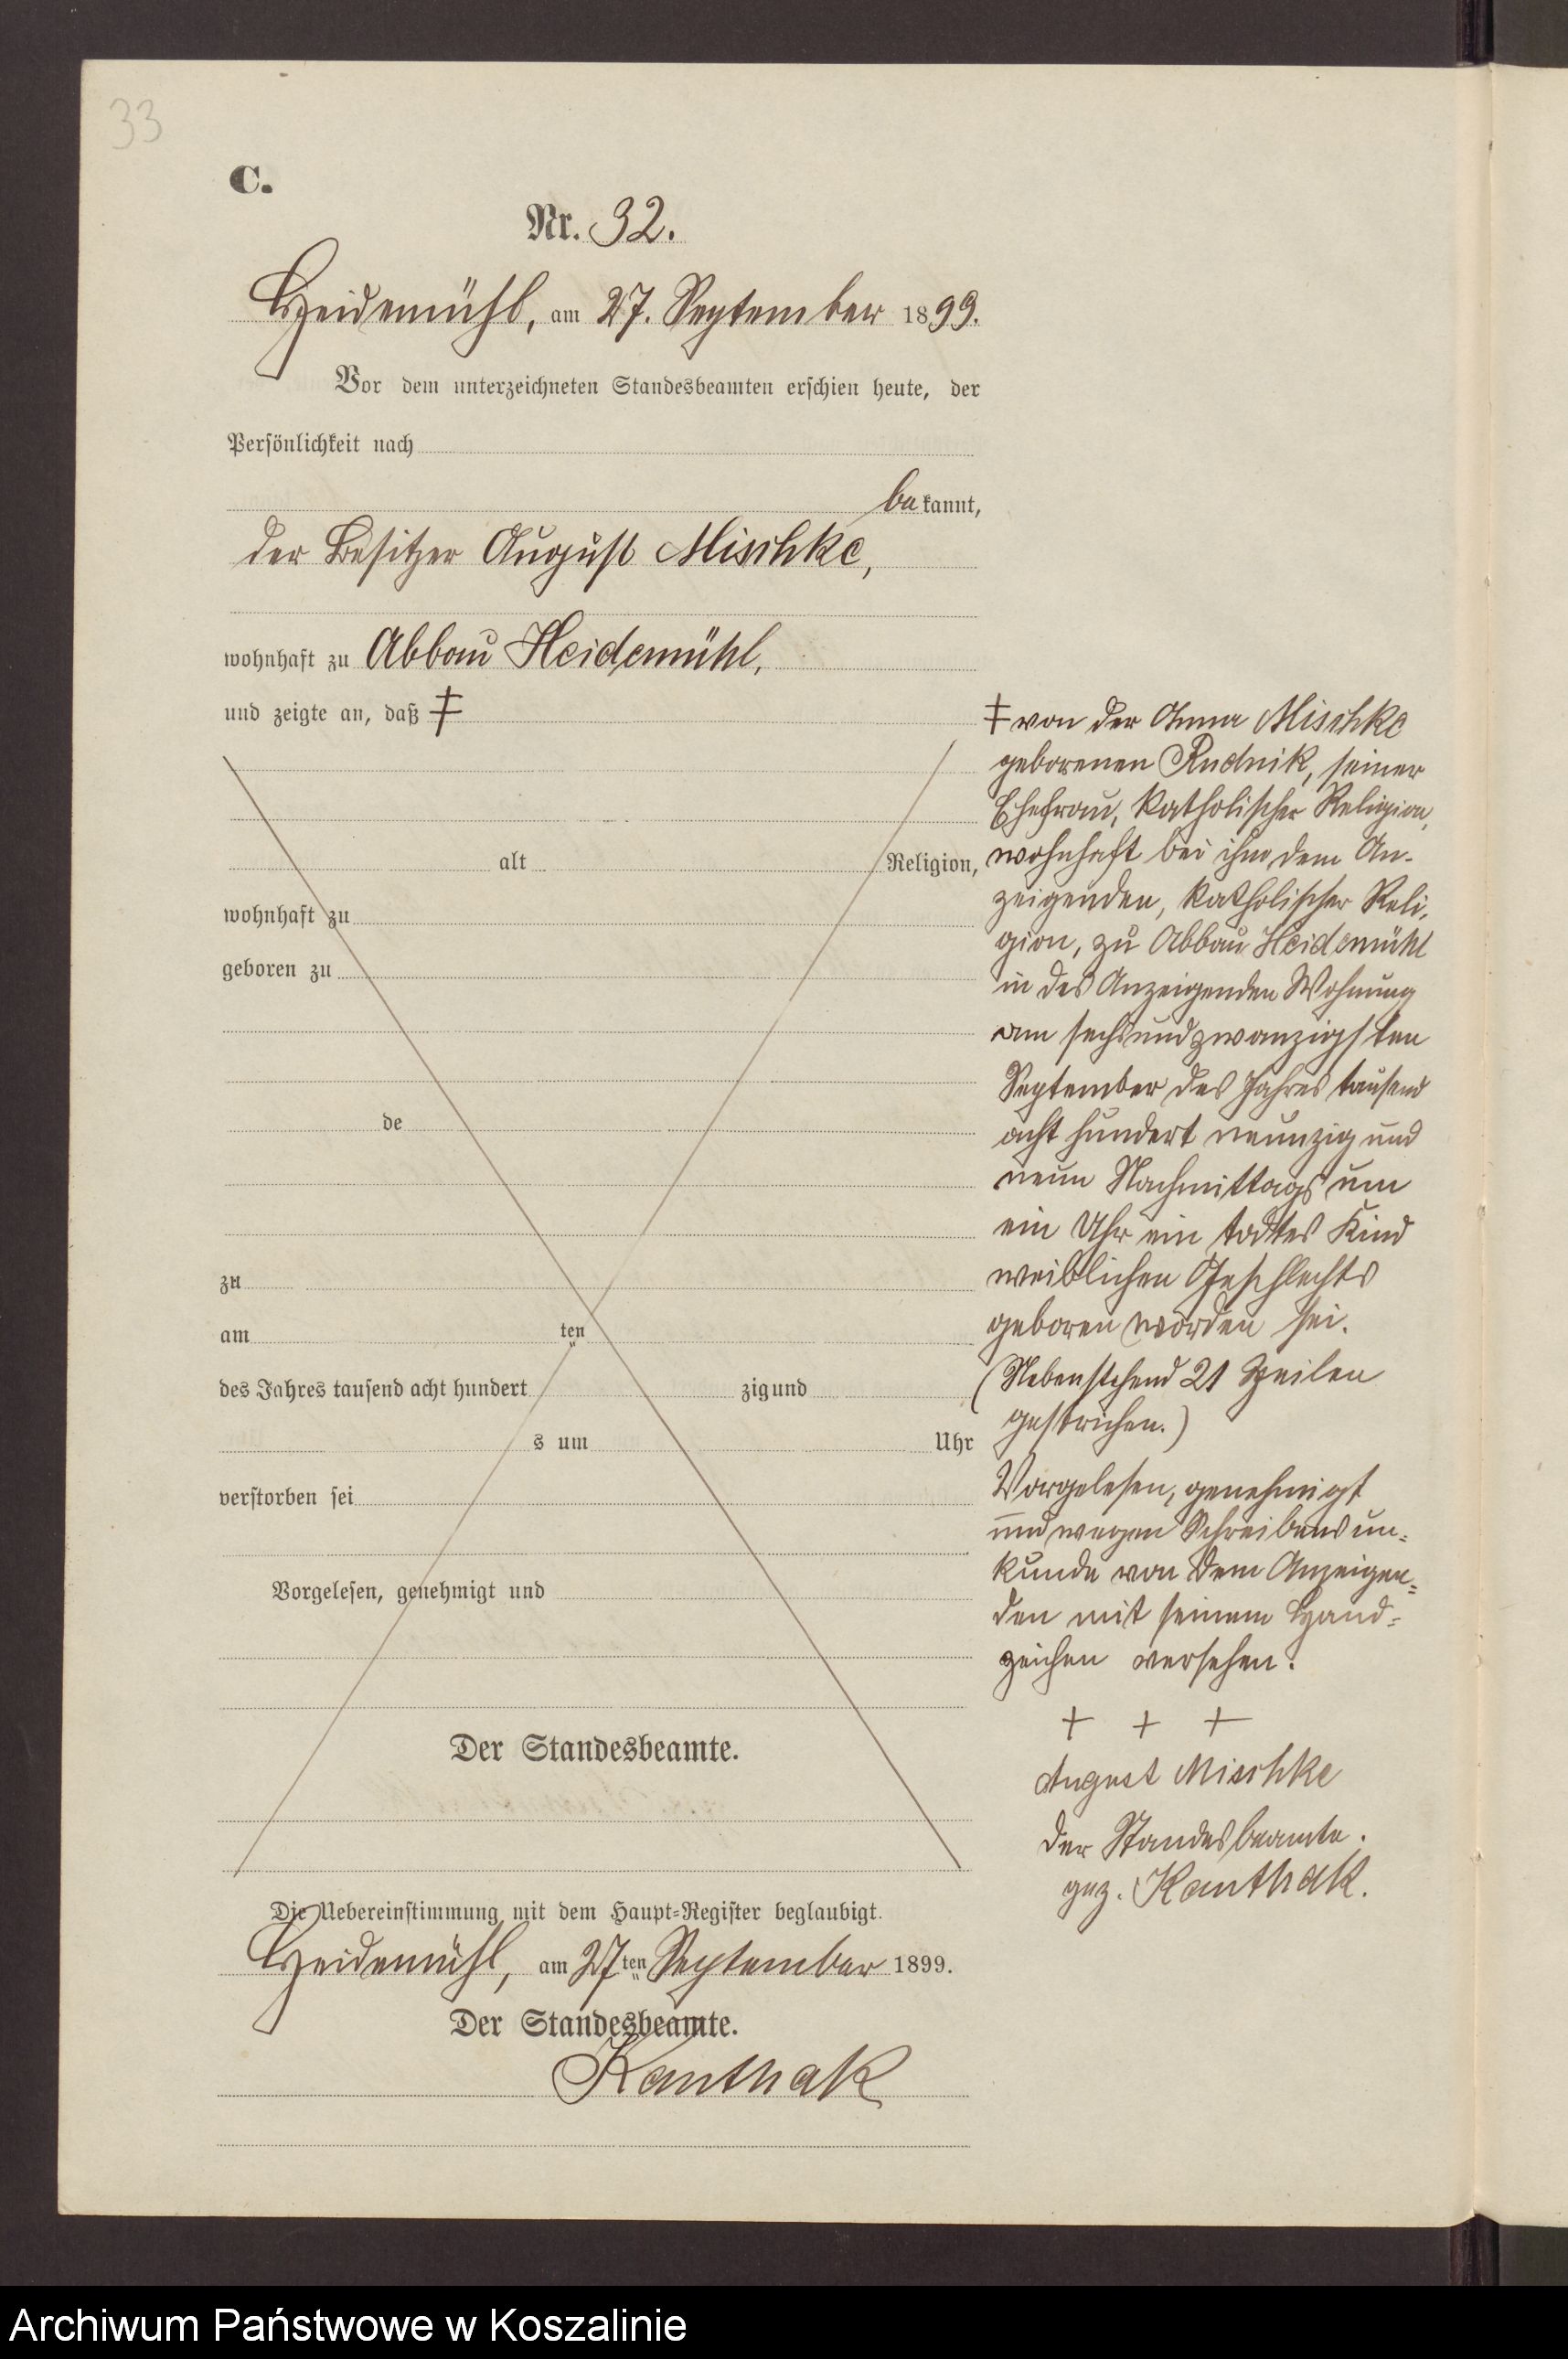 33
C.
Nr. 32.
Heidemühl, am 27. September 1899.
Vor dem unterzeichneten Standesbeamten erschien heute, der
Persönlichkeit nach
bekannt,
der Besitzer August Mischke,
wohnhaft zu Abbau Heidemühl,
und zeigte an, daß ‡
alt Religion,
wohnhaft zu
geboren zu
de
zu
am ten
des Jahres tausend acht hundert zig und
s um Uhr
verstorben sei
Vorgelesen, genehmigt und
Der Standesbeamte.
‡ von der Anna Mischke
geborenen Rudnik, seiner
Ehefrau, katholischer Religion,
wohnhaft bei ihm dem An-
zeigenden, katholischer Reli-
gion, zu Abbau Heidemühl
in des Anzeigenden Wohnung
am sechsundzwanzigsten
September des Jahres tausend
acht hundert neunzig und
neun Nachmittags um
ein Uhr ein todtes Kind
weiblichen Geschlechts
geboren worden sei.
(Nebenstehend 21 Zeilen
gestrichen.)
Vorgelesen, genehmigt
und wegen Schreibens un=
kunde von dem Anzeigen=
den mit seinem Hand=
zeichen versehen.
+ + +
August Mischke
Der Standesbeamte.
gez. Kanthak.
Die Uebereinstimmung mit dem Haupt=Register beglaubigt.
Heidemühl, am 27ten September 1899.
Der Standesbeamte.
Kanthak
Archiwum Państwowe w Koszalinie